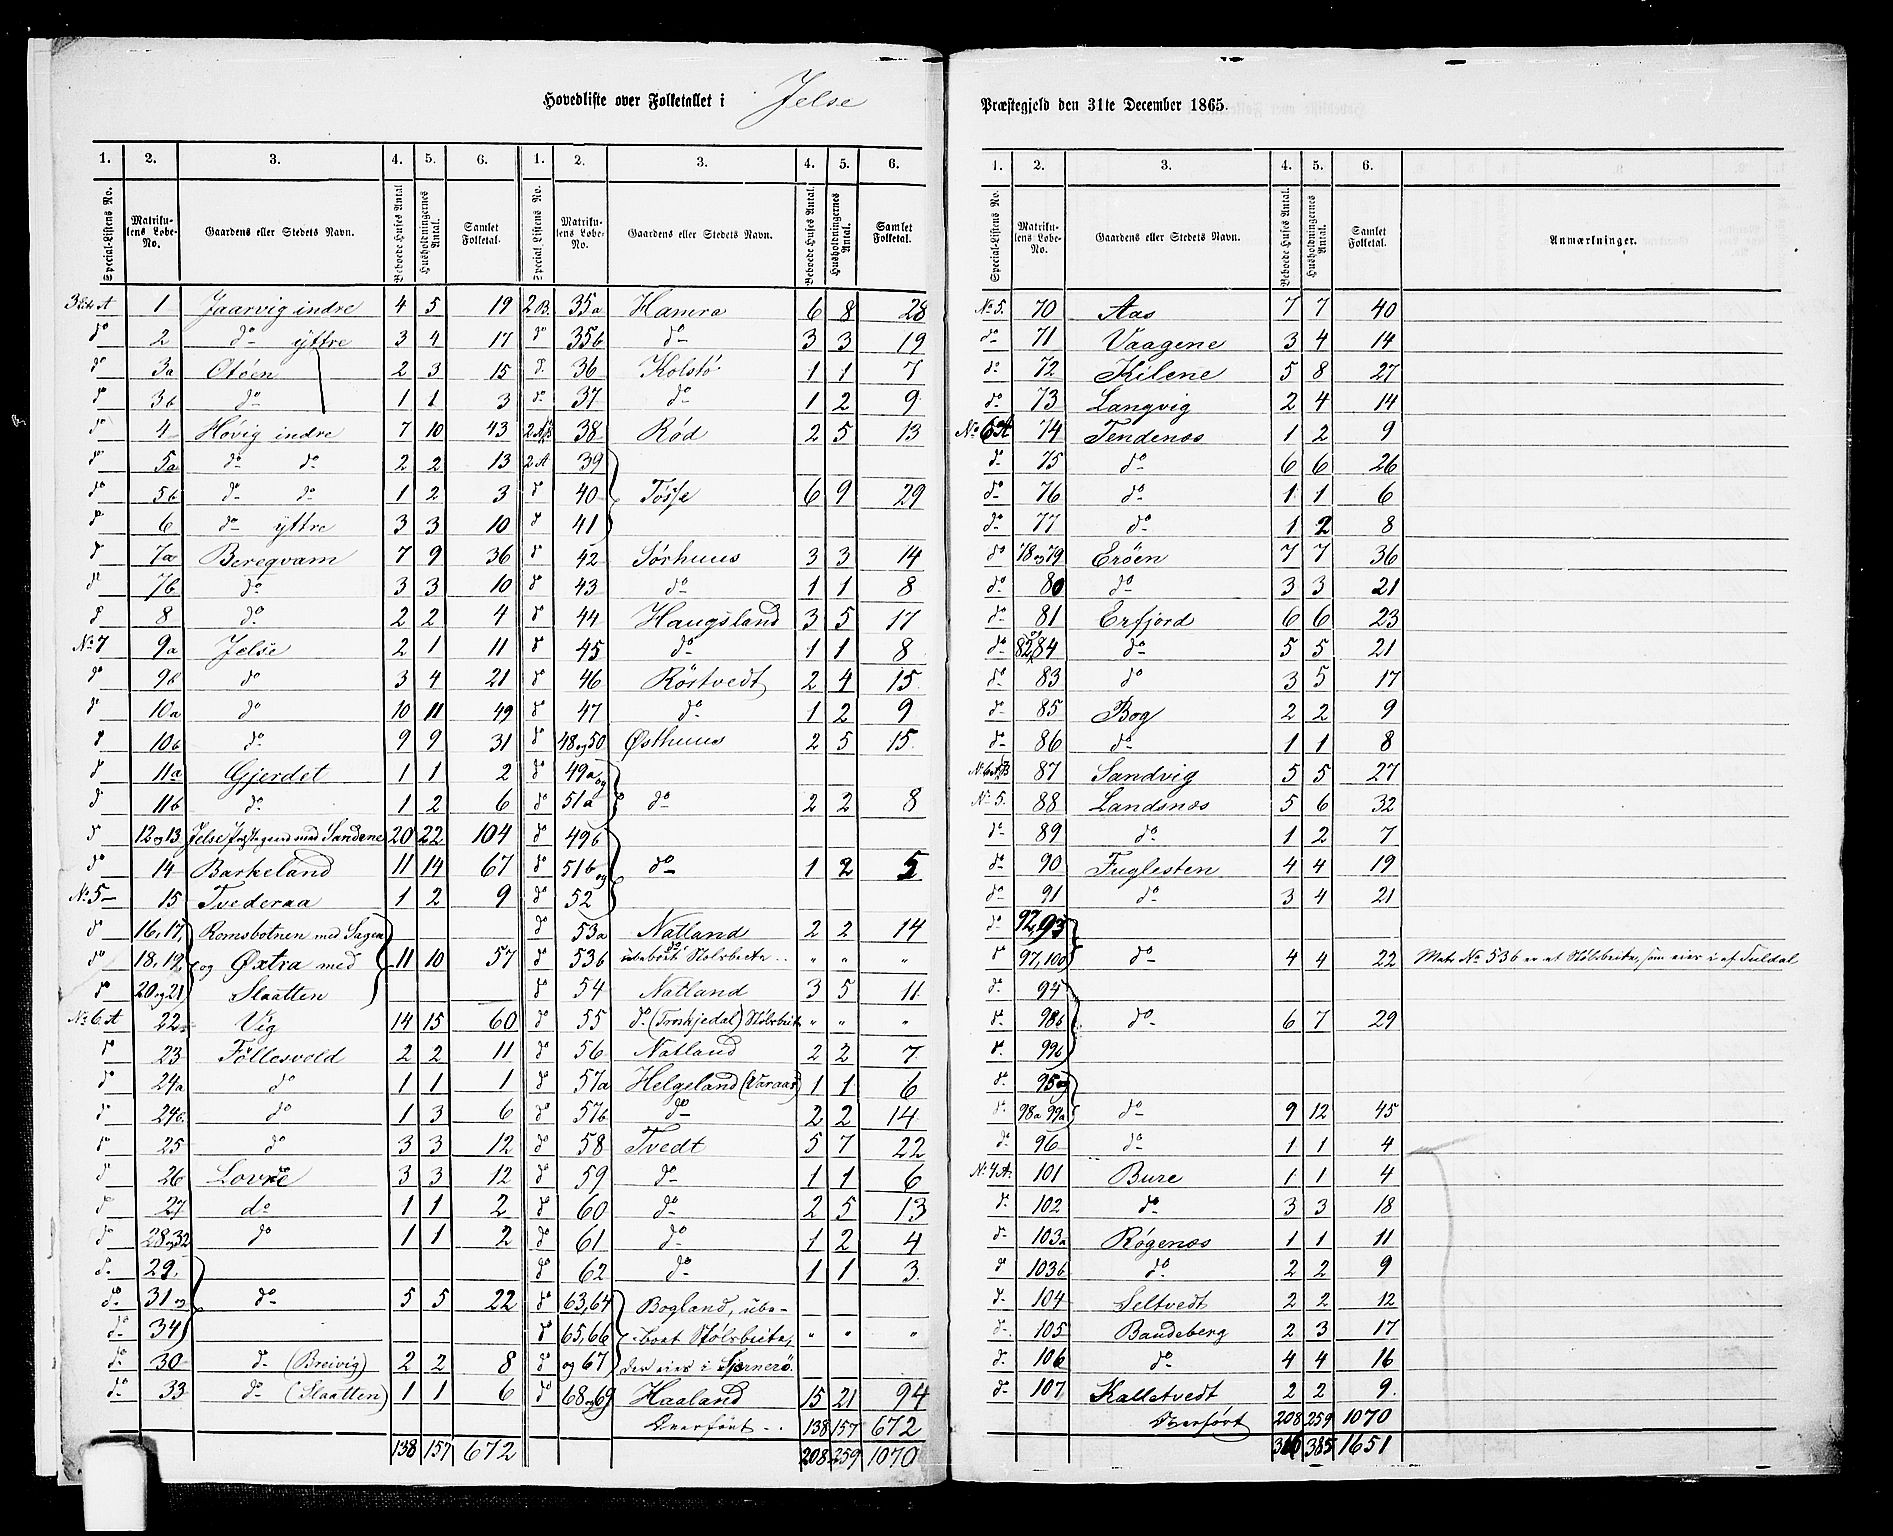 Hovedliste over Folketallet i Jelse
1. 2. 3. 4. 5. 6. 1. 2. 3. 4. 5. 6.
Special-Listens No. Matrikulens Løbe-No. Gaardens eller Stedets Navn. Beboede Huses Antal. Husholdningernes Antal. Samlet Folketal. Special-Listens No. Matrikulens Løbe-No. Gaardens eller Stedets Navn. Beboede Huses Antal. Husholdningernes Antal. Samlet Folketal.
A 1 Jaarvig indre 4 5 19 2 B. 35a Hamra 6 8 28
do 2 do yttre 3 4 17 do 35b do 3 3 19
do 3a Otöen 2 3 15 do 36 Kolstö 1 1 7
do 3b do 1 1 3 do 37 do 1 2 9
do 4 Høvig indre 7 10 43 38 Rød 2 5 13
do 5a do do 2 2 13 2 A 39
do 5b do do 1 2 3 do 40 Tøsse 6 9 29
do 6 do yttre 3 3 10 do 41
do 7a Beregvam 7 9 36 do 42 Sørhuus 3 3 14
do 7b do 3 3 10 do 43 do 1 1 8
do 8 do 2 2 4 do 44 Haugsland 3 5 17
No 7 9a Jelse 2 1 11 do 45 do 1 1 8
do 9b do 3 4 21 do 46 Röstvedt 2 4 15
do 10a do 10 11 49 do 47 do 1 2 9
do 10b do 9 9 31 do 48 og 50 Østhuus 2 5 15
do 11a Gjerdet 1 1 2 do 49a og
do 11b do 1 2 6 do 51a do 2 2 8
do 12 og 13 Jelse Præstegaard med Sandene 20 22 104 do 49b
do 14 Barkeland 11 14 67 do 51b og do 1 2 5
No 5 15 Tvederaa 1 2 9 do 52
do 16, 17, Romsbotnen med Sagen do 53a Natland 2 2 14
do 18, 19, og Øxtra med 11 10 57 do 53b do ubeboet Stølsbeite " " "
do 20 og 21 Slaatten do 54 Natland 3 5 11
No 6 A 22 Vig 14 15 60 do 55 do (Troskjedal) Stølsbeite " " "
do 23 Föllesveld 2 2 11 do 56 Natland 2 2 7
do 24a do 1 1 1 do 57a Helgeland (Varaas) 1 1 6
do 24b do 1 3 6 do 57b do 2 2 14
do 25 do 3 3 12 do 58 Tvedt 5 7 22
do 26 Lovre 3 3 12 do 59 do 1 1 6
do 27 do 1 1 2 do 60 do 2 5 13
do 28 og 32 do 1 1 2 do 61 do 1 2 4
do 29 do 62 do 1 1 3
do 31 og do 5 5 22 do 63, 64 Bogland, ube-
do 34 do 65, 66 boet Stølsbeite, " " "
do 30 do (Breivig) 2 2 8 do og 67 der eies i Sjernerö.
do 33 do (Slaatten) 1 1 6 do 68 og 69 Haaland 15 21 94
Overført 138 157 672
138 157 672 208 259 1070
Præstegjeld den 31te December 1865.
1. 2. 3. 4. 5. 6.
Special-Listens No. Matrikulens Løbe-No. Gaardens eller Stedets Navn. Beboede Huses Antal. Husholdningernes Antal. Samlet Folketal. Anmærkninger.
No 5. 70 Aas 7 7 40
do 71 Vaagene 3 4 14
do 72 Kilene 5 8 27
do 73 Langvig 2 4 14
No 6 A 74 Tendenæs 1 2 9
do 75 do 6 6 26
do 76 do 1 1 6
do 77 do 1 2 8
do 78 og 79 Eröen 7 7 36
do 80 do 3 3 21
do 81 Erfjord 6 6 23
do 82 og 84 do 5 5 21
do 83 do 3 5 17
do 85 Bog 2 2 9
do 86 do 1 1 8
87 Sandvig 5 5 27
No 5. 88 Landsnæs 5 6 32
do 89 do 1 2 7
do 90 Fuglesten 4 4 19
do 91 do 3 4 21
do 92, 93
do 97, 100 do 4 4 22 Mats No 53b er et Stølsbeite, som eies i af Suldal
do 94
do 98b do 6 7 29
do 99b
do 95 og
do 98a 99a do 9 12 45
do 96 do 1 1 4
No 4 A. 101 Bure 1 1 4
do 102 do 3 3 18
do 103a Røgenæs 1 1 11
do 103b do 2 2 9
do 104 Seltvedt 2 2 12
do 105 Bandeberg 2 3 17
do 106 do 4 4 16
do 107 Kalletvedt 2 2 9
Overført 208 259 1070
385 1651